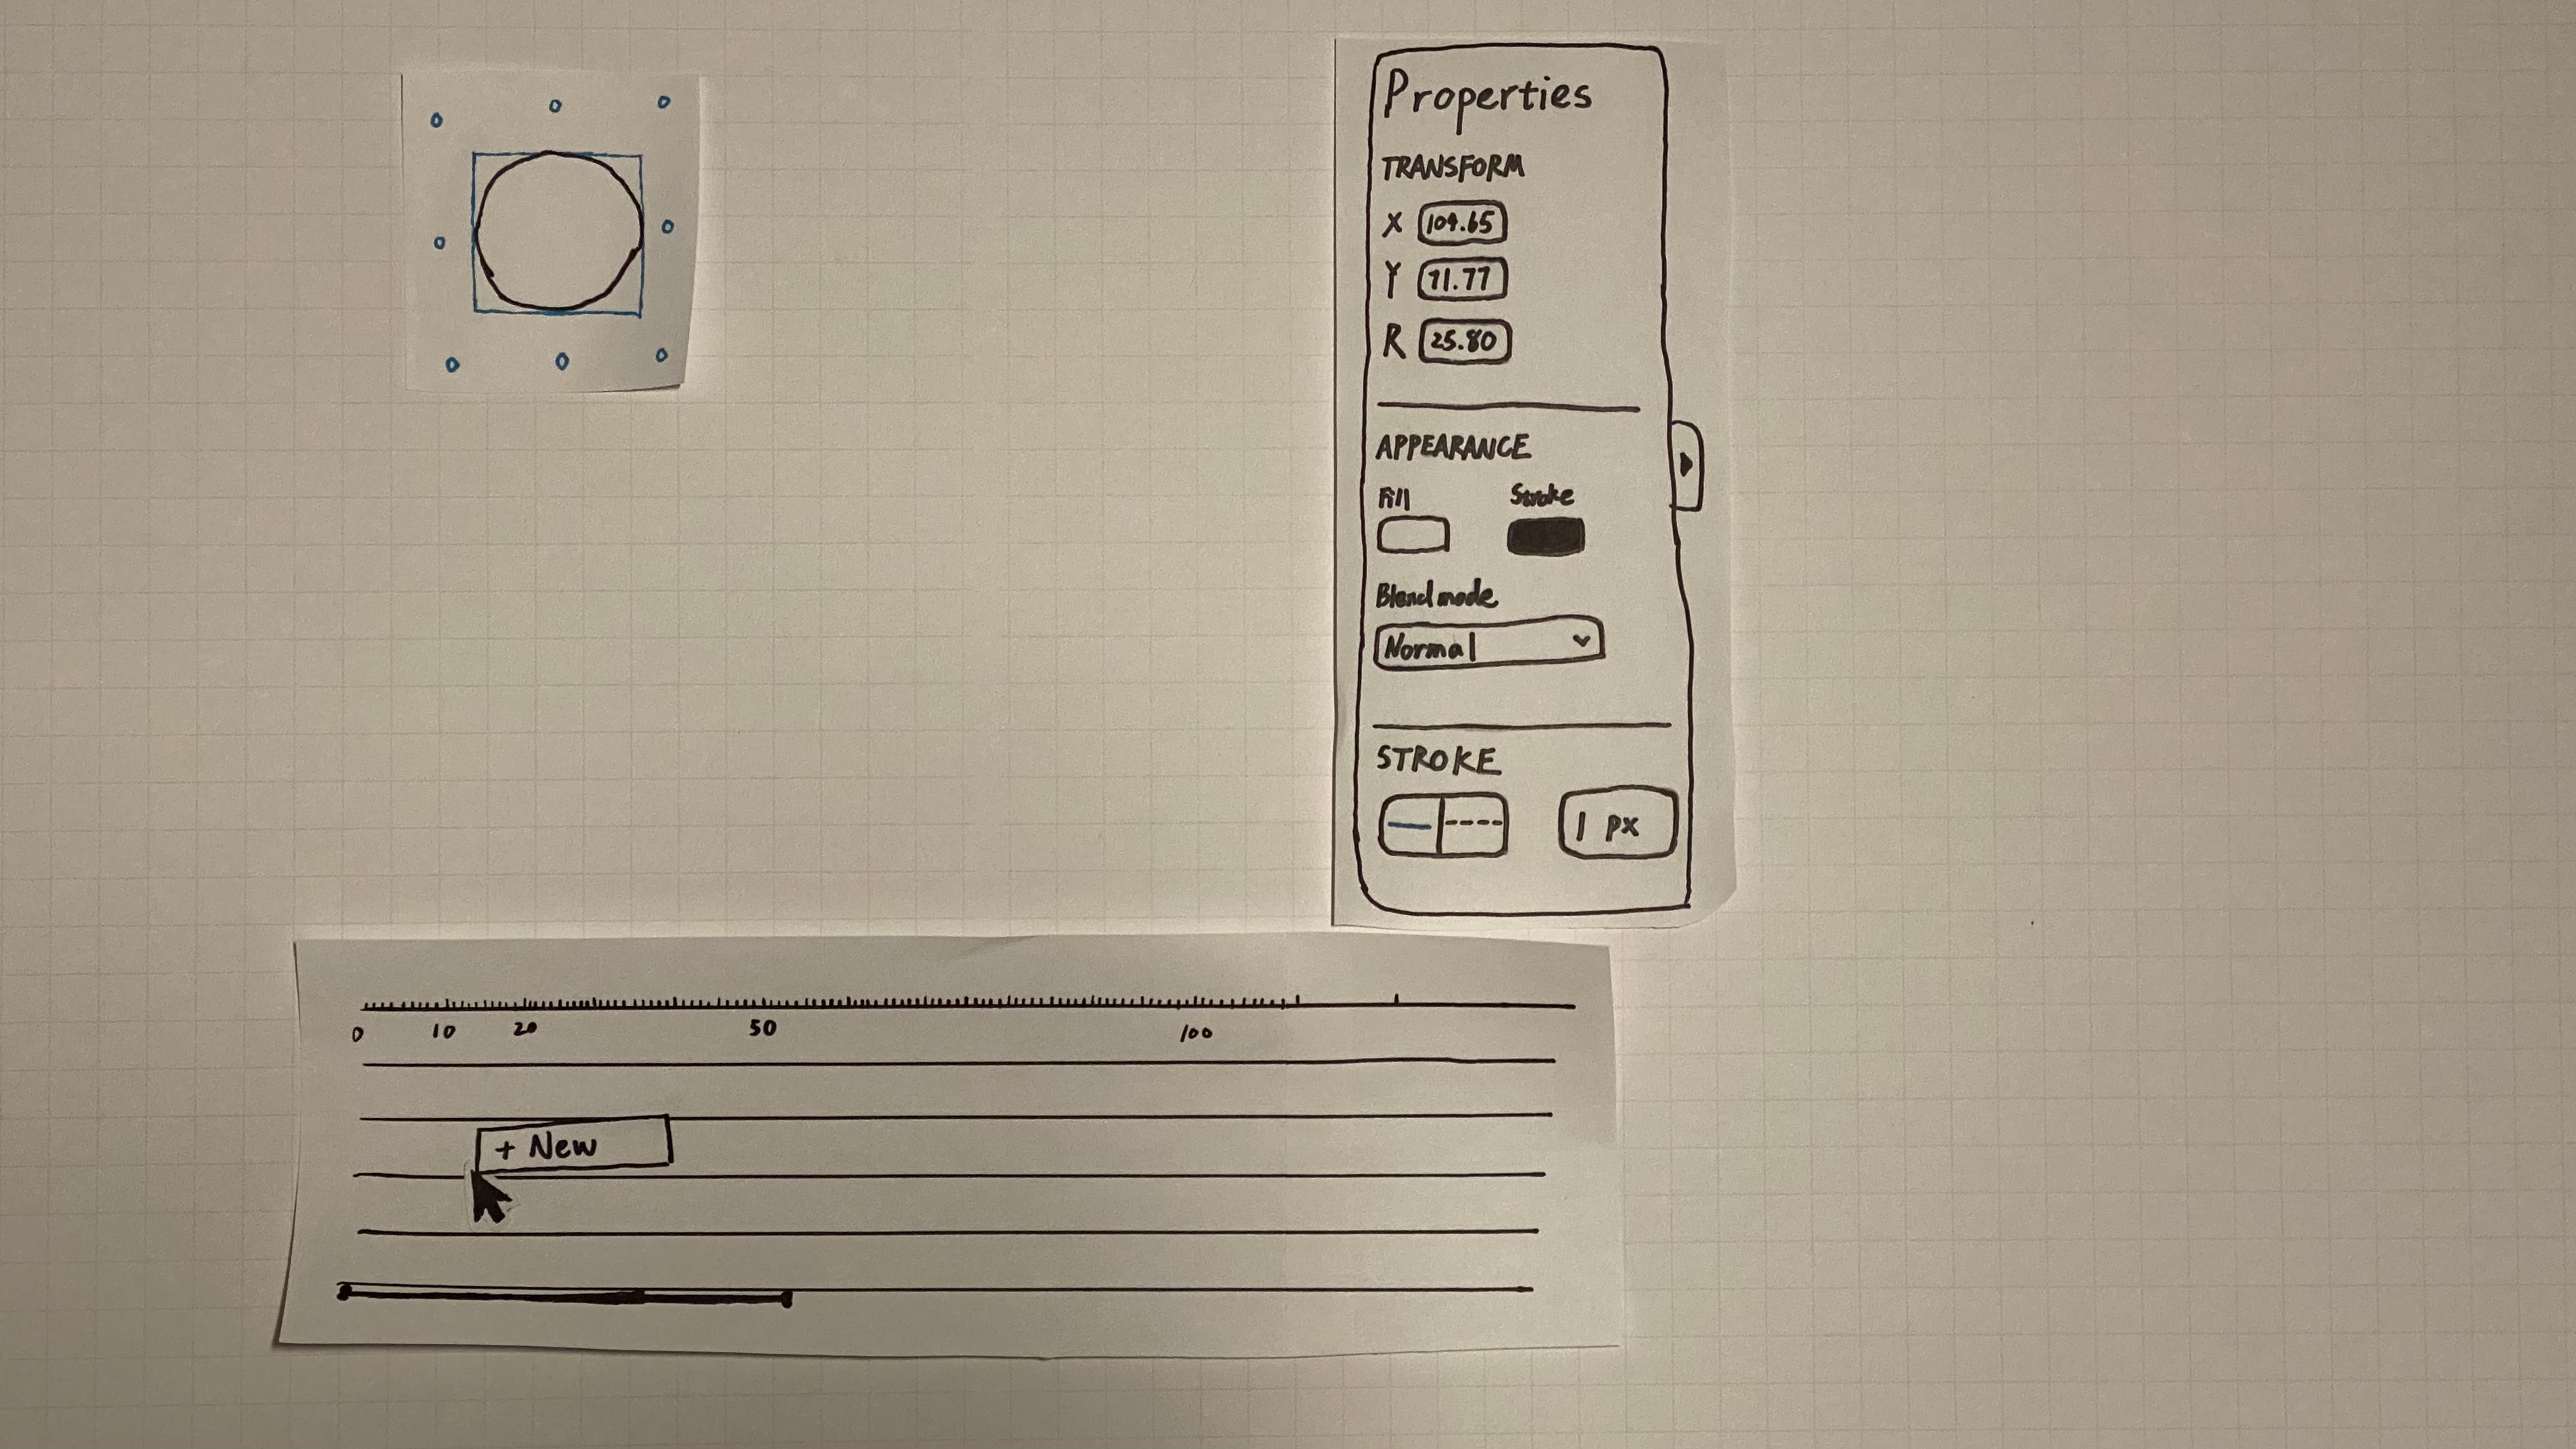 Properties
TRANSFORM
X 109.65
Y 71.77
R 25.80
APPEARANCE
Fill Stroke
Blend mode
Normal
STROKE
1 px
0 10 20 50 100
+ New